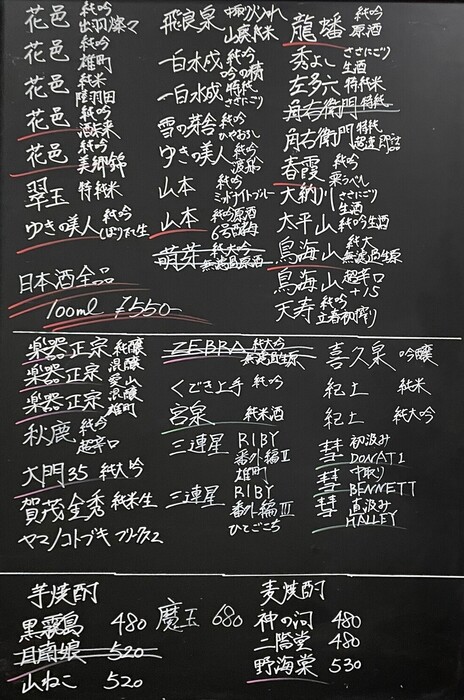 花邑 純吟 出羽燦々
花邑 純吟 雄町
花邑 純米 陸羽田
花邑 純吟 酒未来
花邑 純吟 美郷錦
翠玉 特純米
ゆきの美人 純吟 しぼりたて生
日本酒全品
100ml ¥550-
飛良泉 山廃純米
一白水成 純吟
一白水成 特純 ささにごり
雪の茅舎 純吟 ひやおろし
ゆきの美人 純吟
山本 純吟 ミッドナイトブルー
山本 純吟原酒 6号酵母
萌芽 純大吟 無濾過原酒
龍蟠 純吟 原酒
秀よし ささにごり 生酒
左多六 特純米
角右衛門 特純
角右衛門 特純 超速即詰
春霞 純吟 栗ラベル
大納川 ささにごり 生酒
太平山 純吟生酒
鳥海山 純大 無濾過生原
鳥海山 超辛口 +15
天寿 純吟 立春初搾り
楽器正宗 純醸
楽器正宗 混醸 愛山
楽器正宗 混醸 雄町
秋鹿 純吟 超辛口
大門35 純大吟
賀茂金秀 純米生
ヤマノコトブキ フリークス2
ZEBRA 純大吟 無濾過生原
くどき上手 純吟
宮泉 純米酒
三連星 RIBY 番外編II 雄町
三連星 RIBY 番外編III ひとごこち
喜久泉 吟醸
紀土 純米
紀土 純大吟
彗 初汲み DONATI
彗 中取り BENNETT
彗 直汲み HALLEY
芋焼酎
黒霧島 480
日南娘 520
山ねこ 520
魔王 680
麦焼酎
神の河 480
二階堂 480
野海棠 530